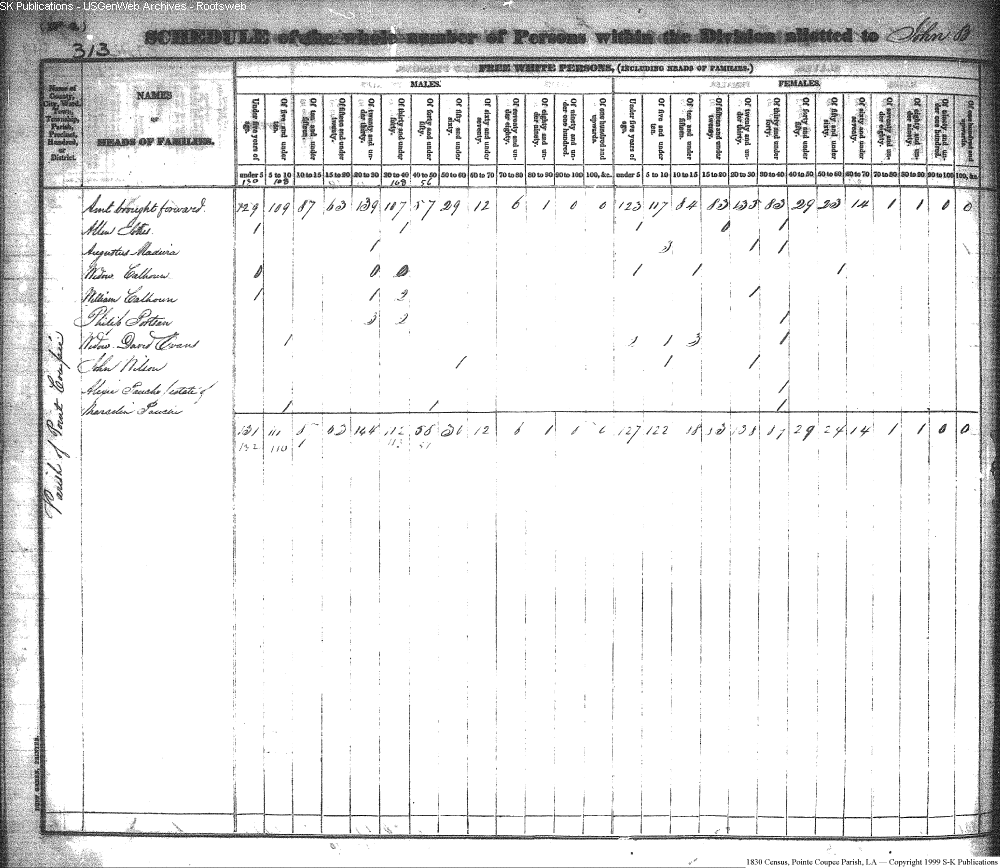 SK Publications - USGenWeb Archives - Rootsweb
313
SCHEDULE of the whole number of Persons within the Division allotted to John B
FREE WHITE PERSONS, (INCLUDING HEADS OF FAMILIES.)
MALES. FEMALES.
Name of County, City, Ward, Town, Township, Parish, Precinct, Hundred, or District.
NAMES
OF
HEADS OF FAMILIES.
Under five years of age.
Of five and under ten.
Of ten and under fifteen.
Of fifteen and under twenty.
Of twenty and under thirty.
Of thirty and under forty.
Of forty and under fifty.
Of fifty and under sixty.
Of sixty and under seventy.
Of seventy and under eighty.
Of eighty and under ninety.
Of ninety and under one hundred.
Of one hundred and upwards.
Under five years of age.
Of five and under ten.
Of ten and under fifteen.
Of fifteen and under twenty.
Of twenty and under thirty.
Of thirty and under forty.
Of forty and under fifty.
Of fifty and under sixty.
Of sixty and under seventy.
Of seventy and under eighty.
Of eighty and under ninety.
Of ninety and under one hundred.
Of one hundred and upwards.
under 5 5 to 10 10 to 15 15 to 20 20 to 30 30 to 40 40 to 50 50 to 60 60 to 70 70 to 80 80 to 90 90 to 100 100, &c. under 5 5 to 10 10 to 15 15 to 20 20 to 30 30 to 40 40 to 50 50 to 60 60 to 70 70 to 80 80 to 90 90 to 100 100, &c.
130 108 108 56
Amt brought forward. 129 109 87 63 139 107 57 29 12 6 1 0 0 123 117 84 83 135 83 29 23 14 1 1 0 0
Allen 1 1 1 0 1
Augustus Madeira 1 3 1 1
Widow Calhoun 0 0 0 1 1 1
William Calhoun 1 1 2 1
Philip 3 2 1
Widow David Evans 1 1 1 3 1
John Wilson 1 1 1
Alexie Pauche (estate of 1
Pauche 1 1 1
131 111 63 144 112 58 30 12 6 1 127 122 29 24 14 1 1 0 0
132 110 1 113
Parish of Point Coupée
1830 Census, Pointe Coupee Parish, LA — Copyright 1999 S-K Publications